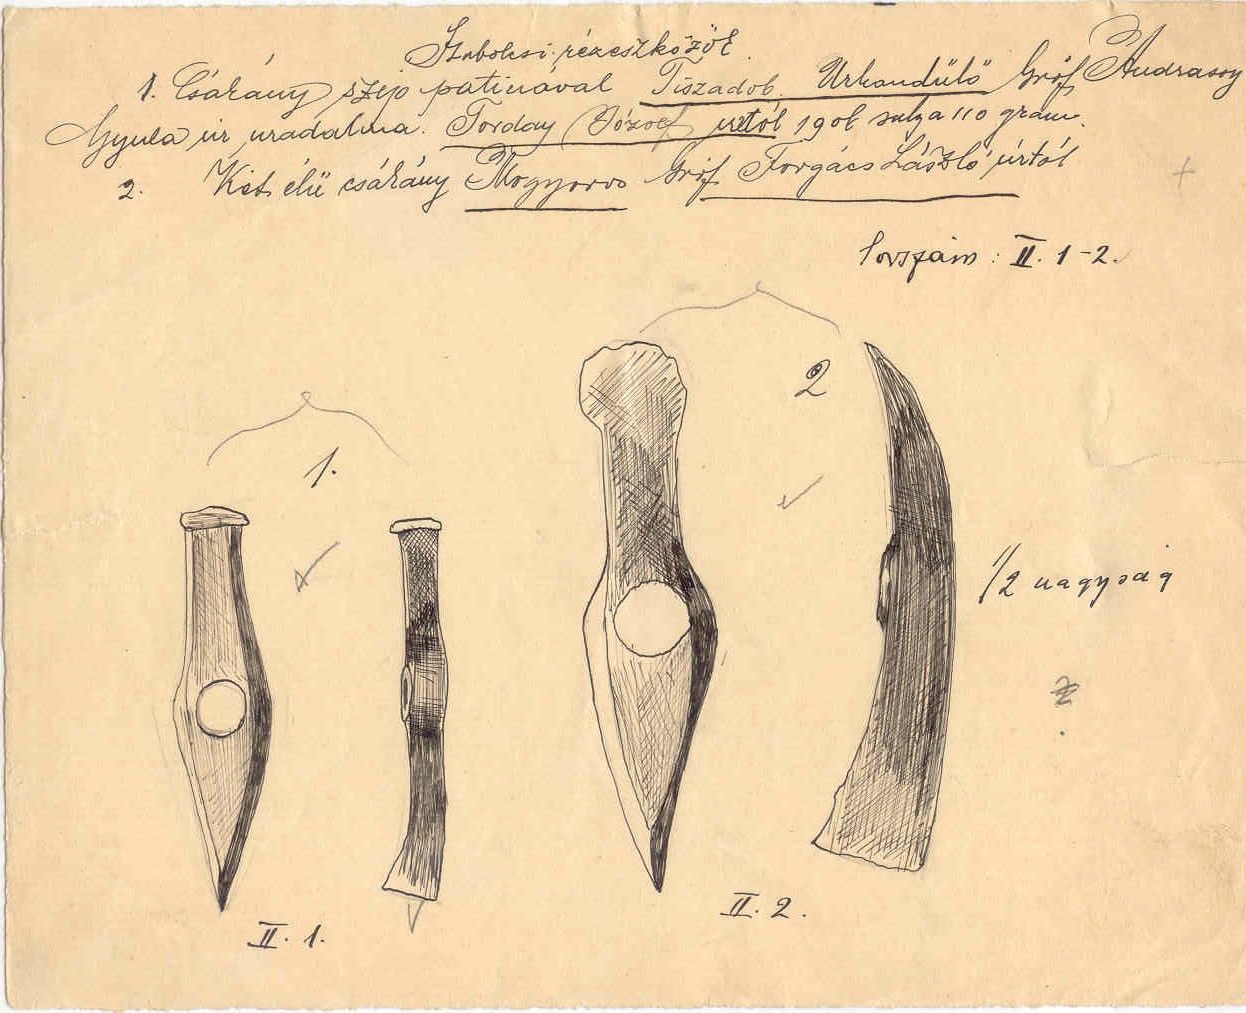 Szabolcsi rézeszközök
1. Csákány szép patinával Tiszadob. Urkomdülő Gróf Andrassy
Gyula úr uradalma. Torday József úrtól 1908 sulya 110 gram.
2. Két élü csákány Mogyoros Gróf Forgács László úrtól
Sorszám: II. 1-2.
2
1.
1/2 nagyság
II. 2.
II. 1.